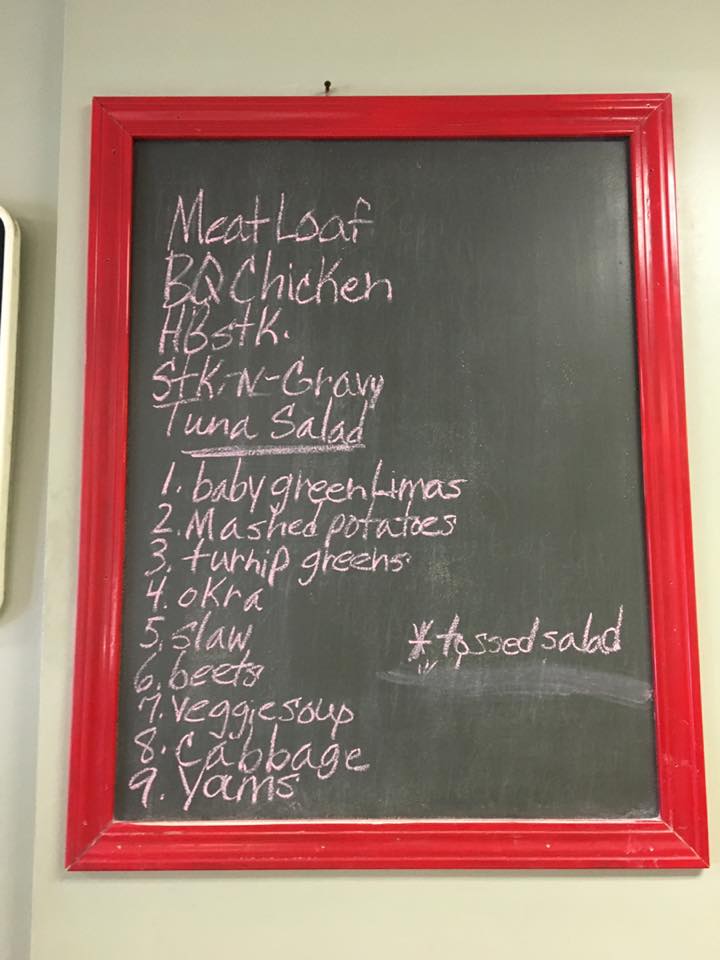 Meat Loaf
BQ Chicken
HBstk.
Stk-N-Gravy
Tuna Salad
1. baby green Limas
2. Mashed potatoes
3. turnip greens
4. okra
5. slaw
6. beets
7. veggie soup
8. cabbage
9. Yams
* tossed salad